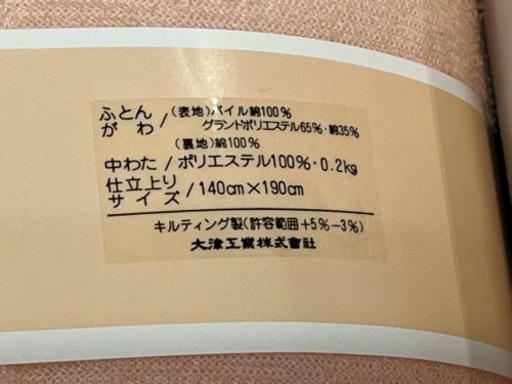 ふとんがわ/(表地)パイル綿100%
グランドポリエステル65%・綿35%
(裏地)綿100%
中わた/ポリエステル100%・0.2kg
仕立上りサイズ/140cm×190cm
キルティング製(許容範囲+5%−3%)
大津工業株式會社